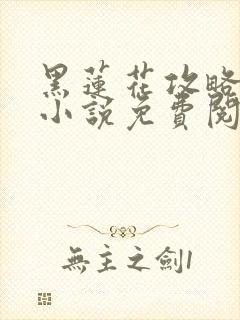 黑蓮花攻略
小說免費閱
無主之劍1